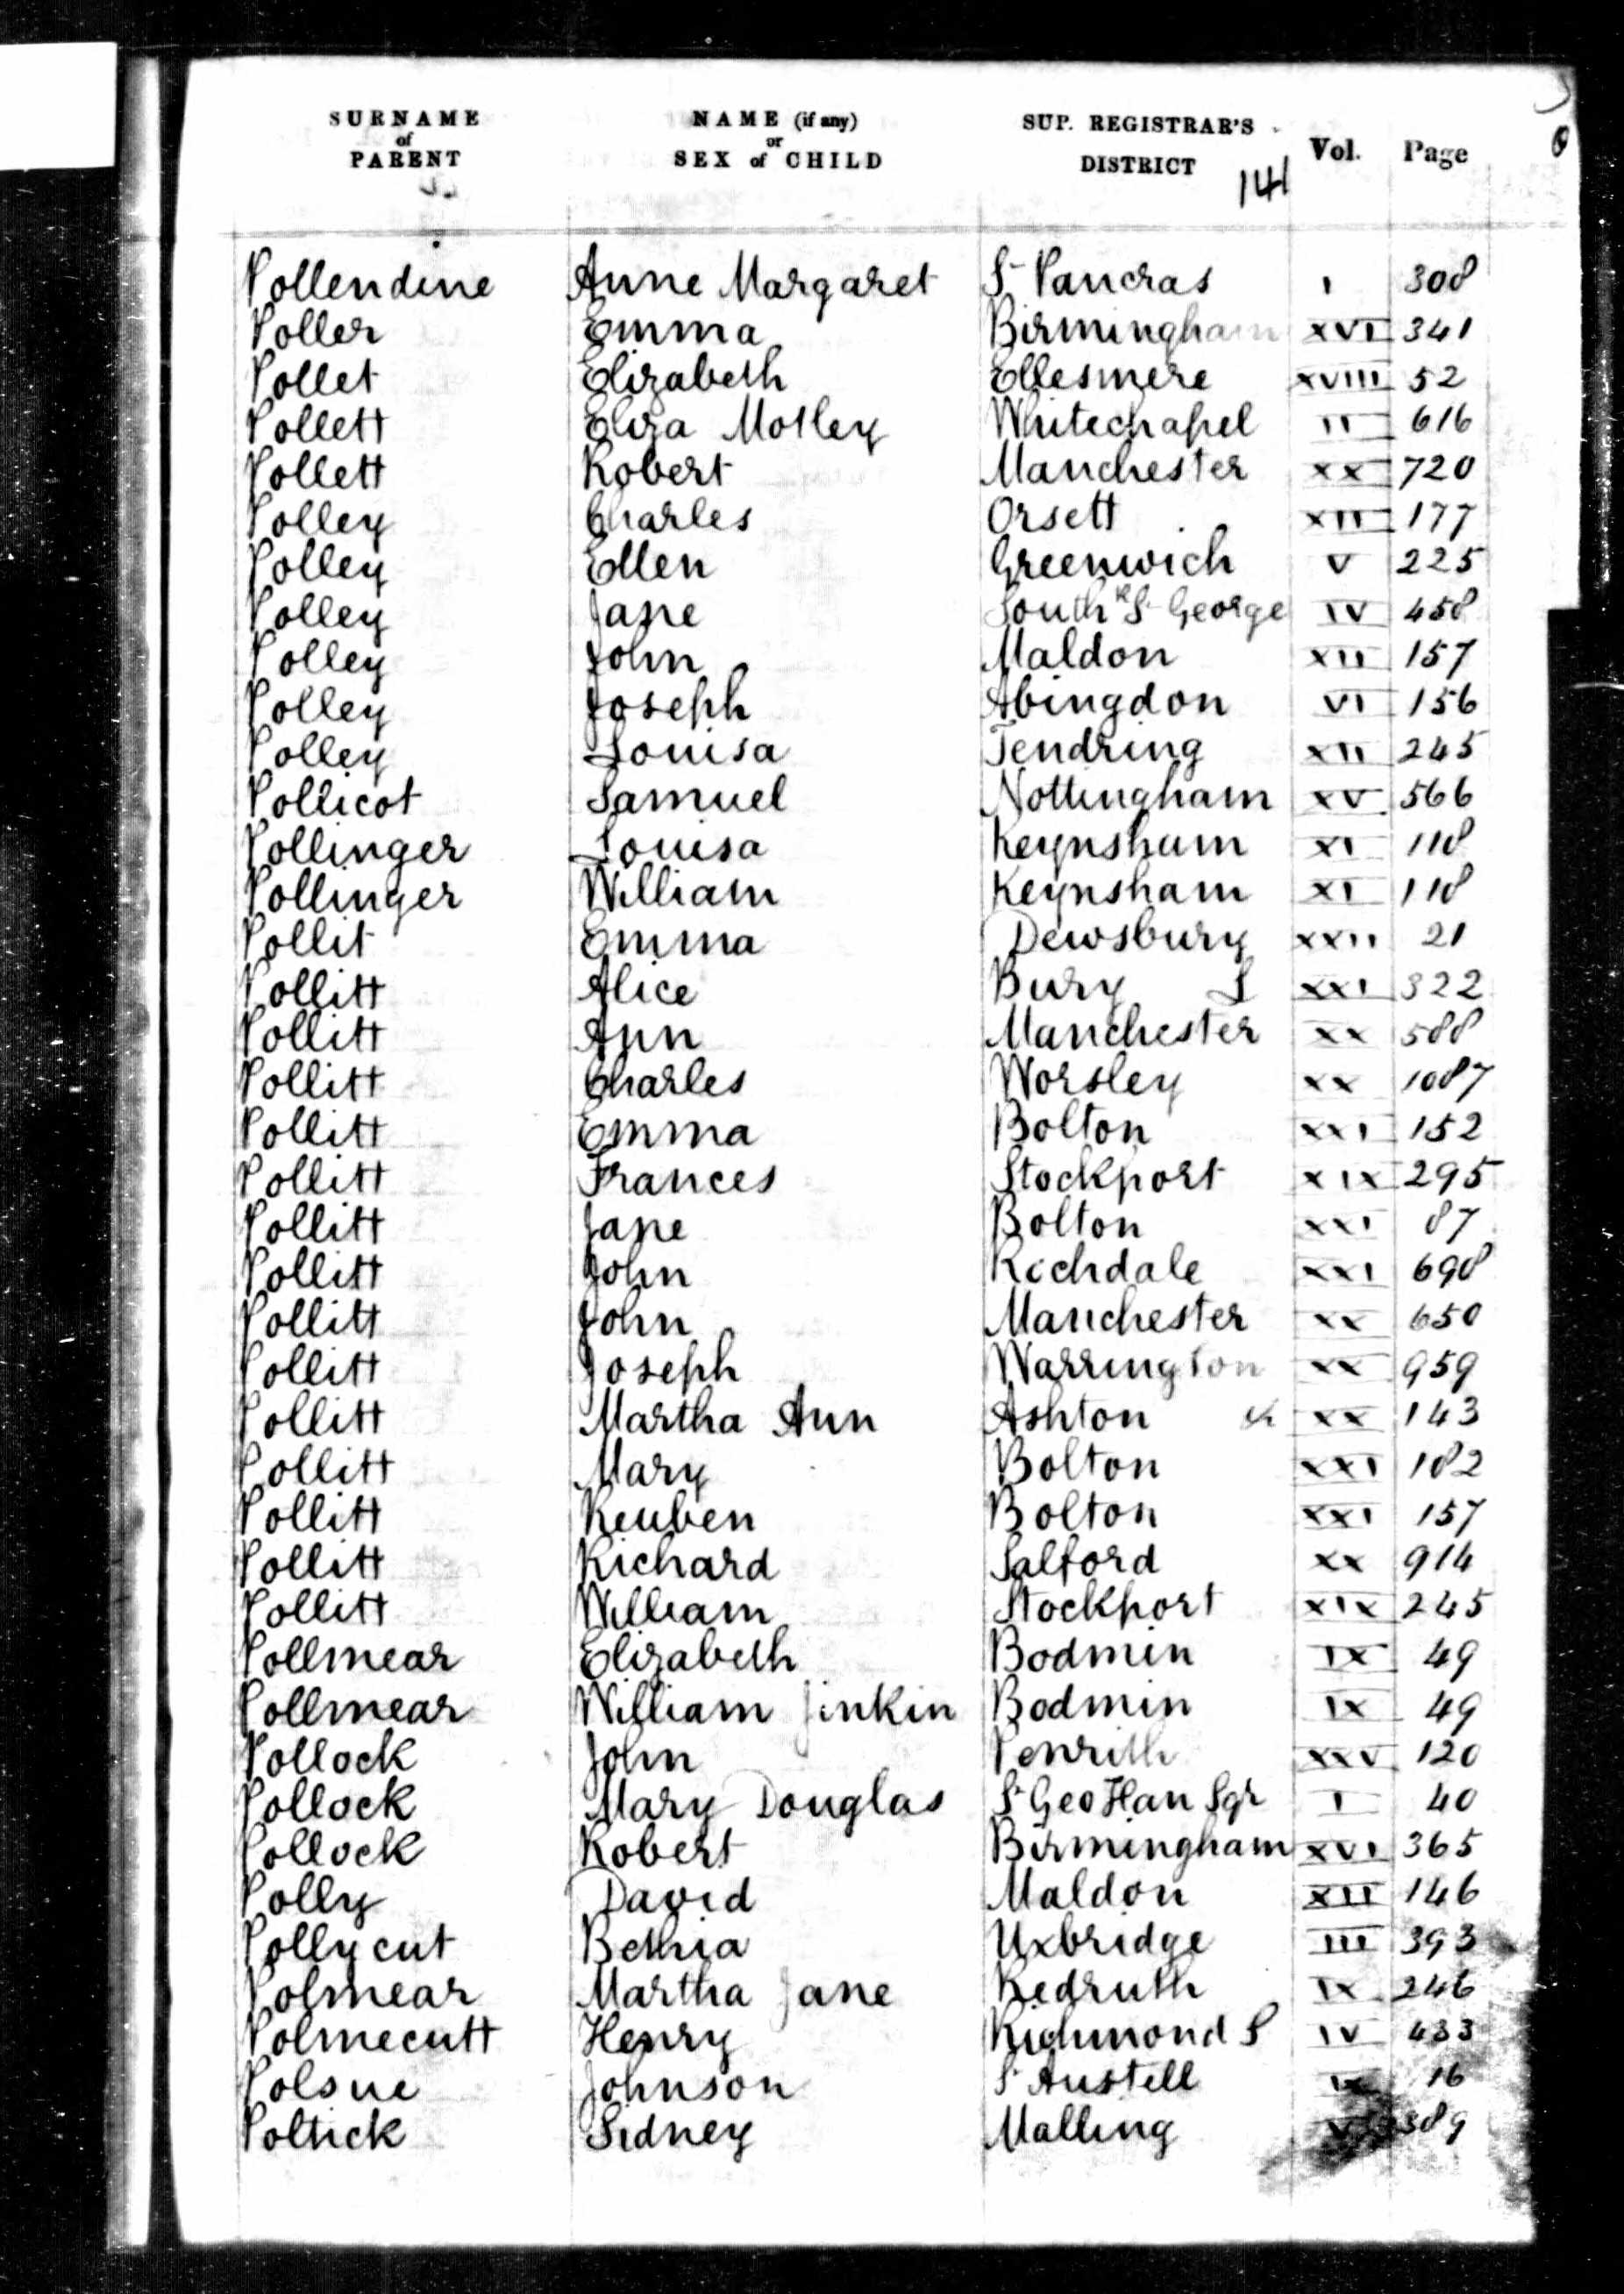 SURNAME of PARENT NAME (if any) or SEX of CHILD SUP. REGISTRAR'S DISTRICT Vol. Page
141
Pollendine Anne Margaret St Pancras I 308
Poller Emma Birmingham XVI 341
Pollet Elizabeth Ellesmere XVIII 52
Pollett Eliza Motley Whitechapel II 616
Pollett Robert Manchester XX 720
Polley Charles Orsett XII 177
Polley Ellen Greenwich V 225
Polley Jane Southk St George IV 458
Polley John Maldon XII 157
Polley Joseph Abingdon VI 156
Polley Louisa Tendring XII 245
Pollicot Samuel Nottingham XV 566
Pollinger Louisa Keynsham XI 118
Pollinger William Keynsham XI 118
Pollit Emma Dewsbury XXII 21
Pollitt Alice Bury L XXI 322
Pollitt Ann Manchester XX 588
Pollitt Charles Worsley XX 1087
Pollitt Emma Bolton XXI 152
Pollitt Frances Stockport XIX 295
Pollitt Jane Bolton XXI 87
Pollitt John Rochdale XXI 698
Pollitt John Manchester XX 650
Pollitt Joseph Warrington XX 959
Pollitt Martha Ann Ashton &c XX 143
Pollitt Mary Bolton XXI 182
Pollitt Reuben Bolton XXI 157
Pollitt Richard Salford XX 914
Pollitt William Stockport XIX 245
Pollmear Elizabeth Bodmin IX 49
Pollmear William Jinkin Bodmin IX 49
Pollock John Penrith XXV 120
Pollock Mary Douglas St Geo Han Sqr I 40
Pollock Robert Birmingham XVI 365
Polly David Maldon XII 146
Pollycut Bethia Uxbridge III 393
Polmear Martha Jane Redruth IX 246
Polmecutt Henry Richmond S IV 433
Polsue Johnson St Austell IX 16
Poltick Sidney Malling V 389